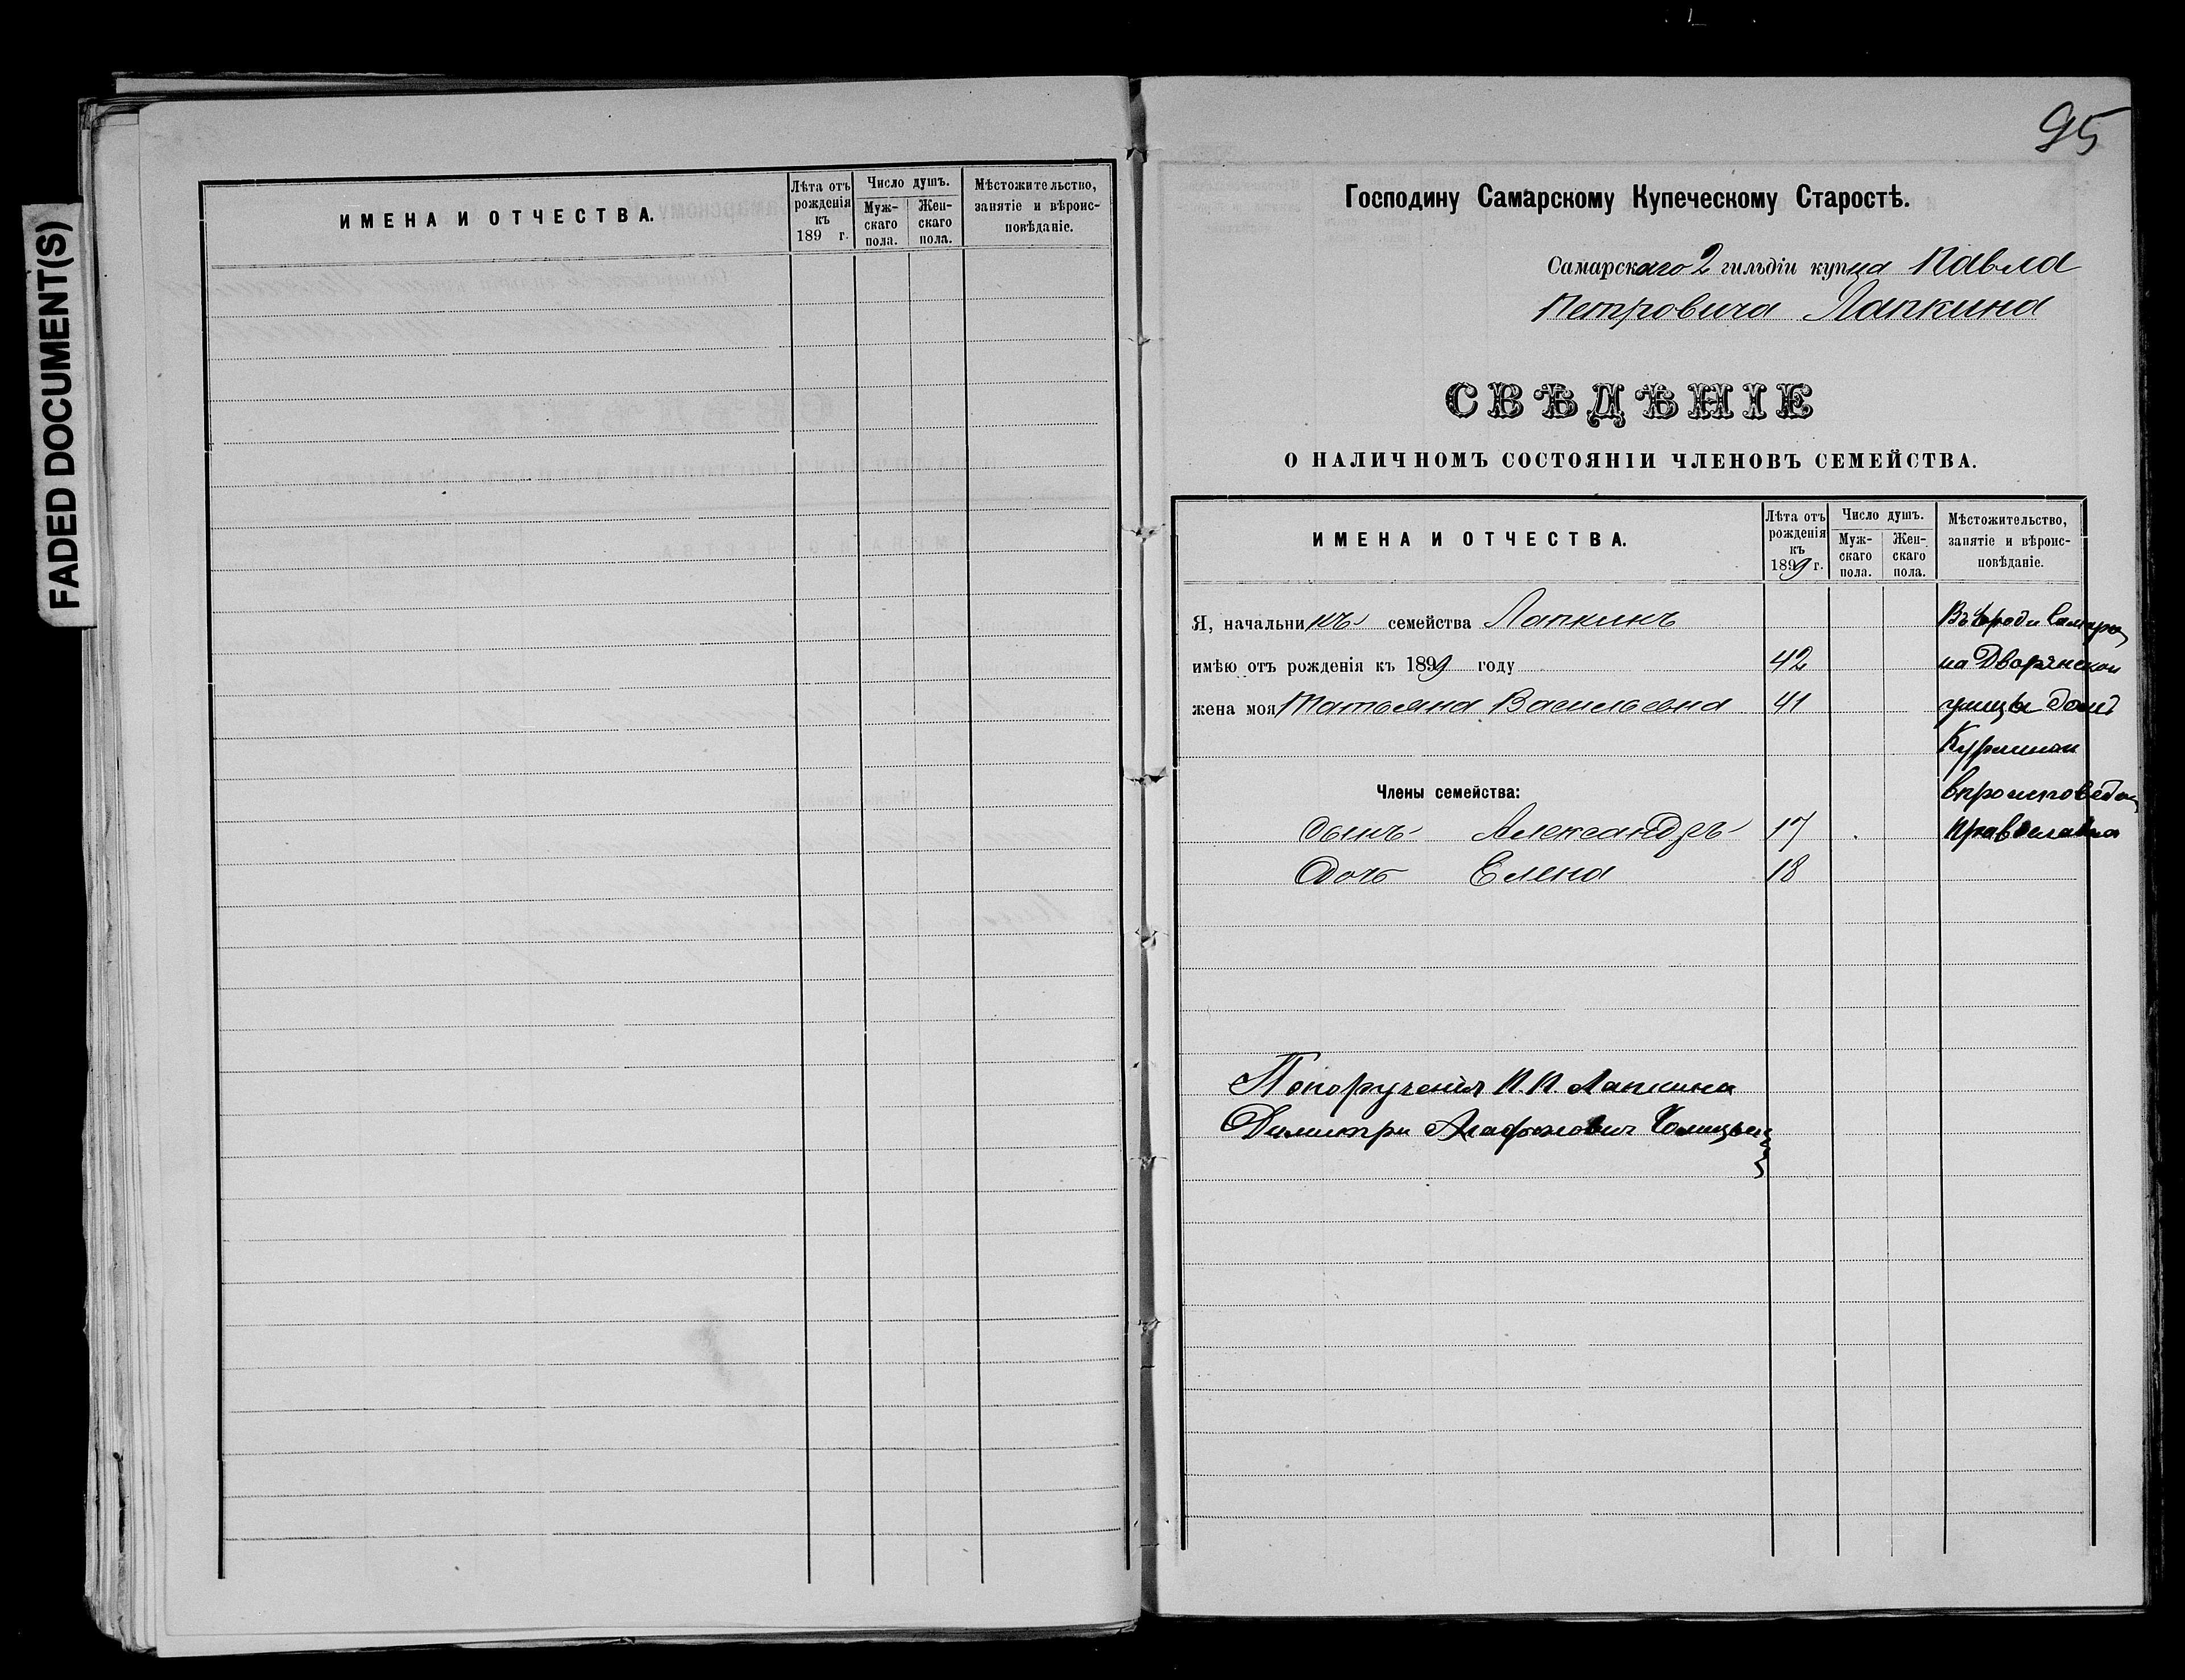 FADED DOCUMENT(S)
ИМЕНА И ОТЧЕСТВА.
Лѣта отъ рожденія къ 189 г.
Число душъ.
Мужскаго пола.
Женскаго пола.
Мѣстожительство, занятіе и вѣроисповѣданіе.
95
Господину Самарскому Купеческому Старостѣ.
Самарскаго 2 гильдіи купца Павла
Петровича Лапкина
СВѢДѢНІЕ
О НАЛИЧНОМЪ СОСТОЯНІИ ЧЛЕНОВЪ СЕМЕЙСТВА.
ИМЕНА И ОТЧЕСТВА.
Лѣта отъ рожденія къ 1899 г.
Число душъ.
Мужскаго пола.
Женскаго пола.
Мѣстожительство, занятіе и вѣроисповѣданіе.
Я, начальникъ семейства Лапкинъ
имѣю отъ рожденія къ 1899 году 42 на Дворянской
жена моя Татьяна Васильевна 41 улицы домъ
Члены семейства:
Сынъ Александръ 17
Дочь Елена 18
По порученія П. П. Лапкина
Димитри